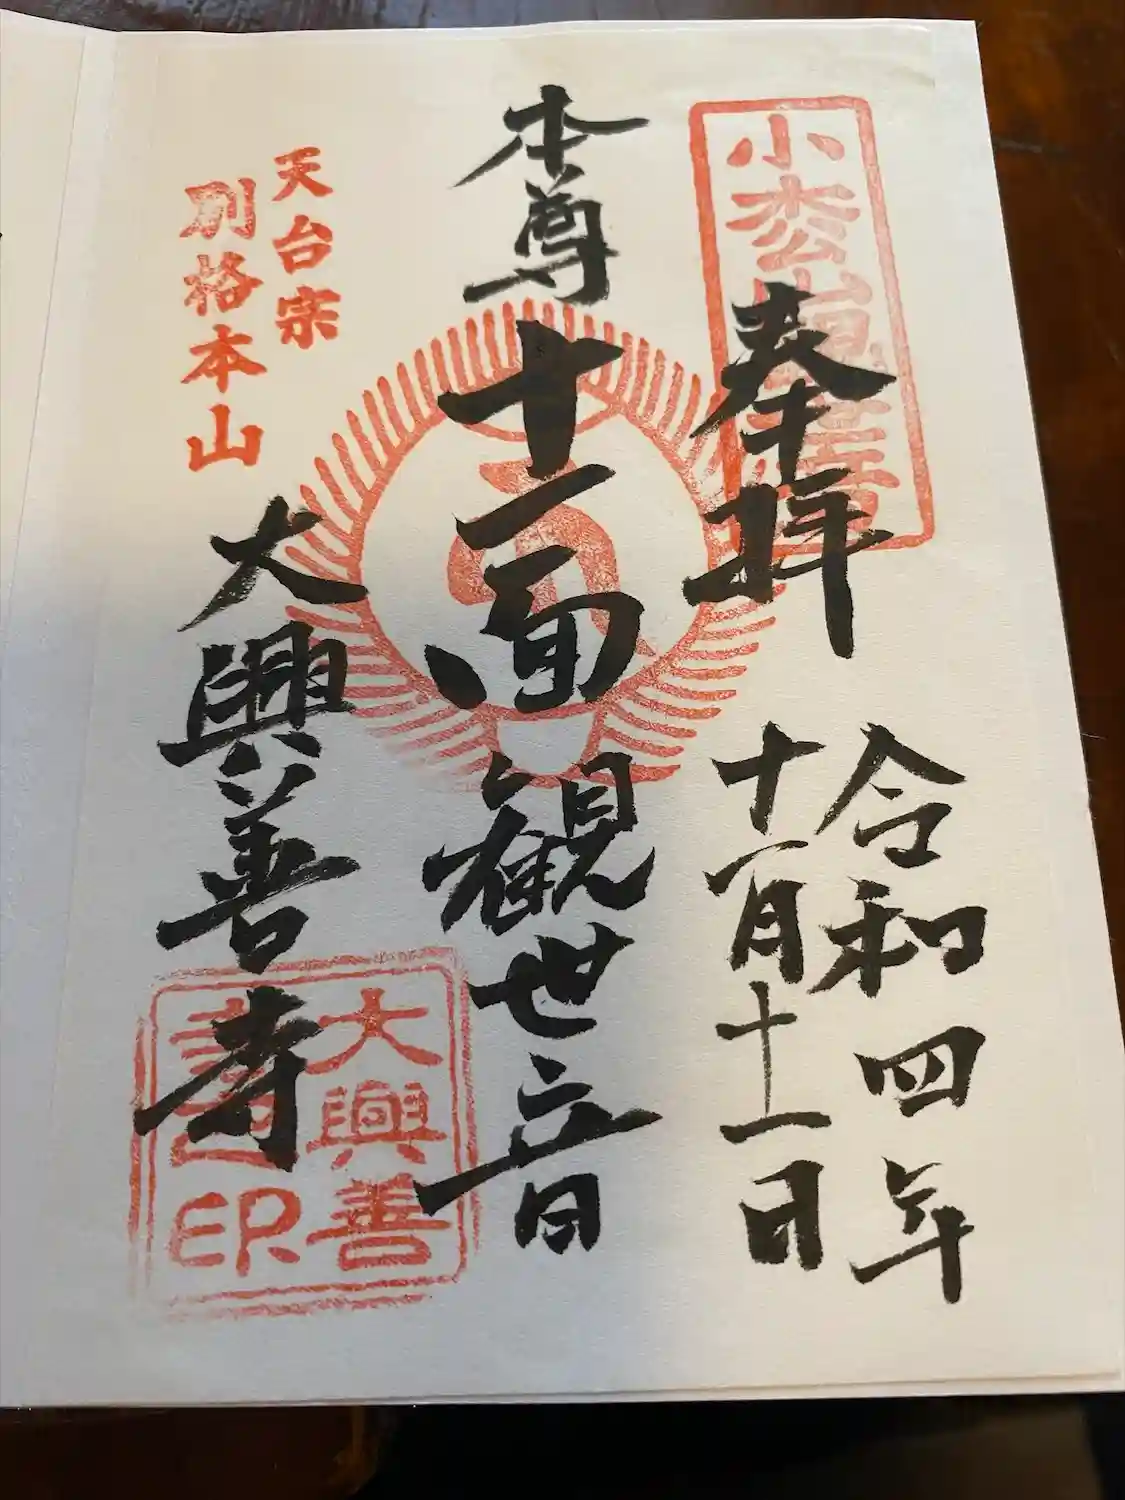 小枩山観世音
奉拝
令和四年
十一月十一日
本尊十一面観世音
天台宗
別格本山
大興善寺
大興善
寺之印